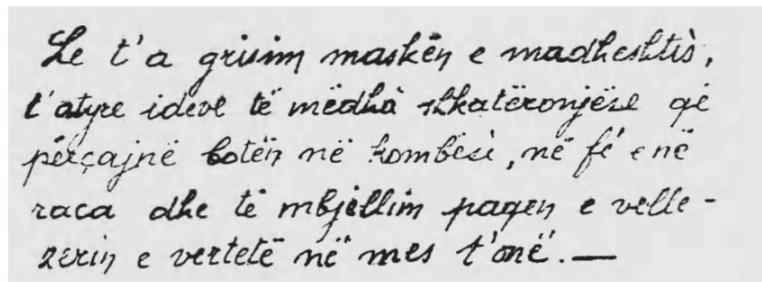 Le t'a grisim maskën e madheshtìs,
t'atyre idevè të mëdhà shkatëronjëse që
përçajnë botën në kombësì, në fé e në
raca dhe të mbjellim paqen e velle-
zerin e vertetë në mes t'onë. —